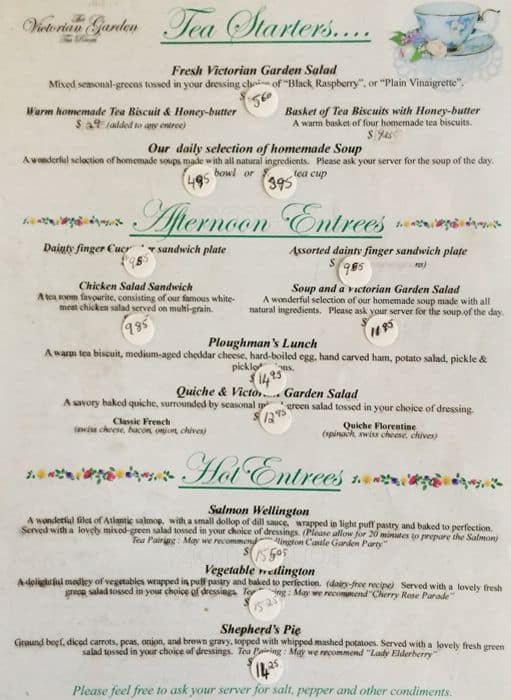 The
Victorian Garden
Tea Room
Tea Starters....
Fresh Victorian Garden Salad
Mixed seasonal-greens tossed in your dressing of "Black Raspberry", or "Plain Vinaigrette".
$ 560
Warm homemade Tea Biscuit & Honey-butter
(added to any entree)
Basket of Tea Biscuits with Honey-butter
A warm basket of four homemade tea biscuits.
$
Our daily selection of homemade Soup
A wonderful selection of homemade soups made with all natural ingredients. Please ask your server for the soup of the day.
495 bowl or $ 395 tea cup
Afternoon Entrees
Dainty finger sandwich plate
$ 985
Assorted dainty finger sandwich plate
$ 985
Chicken Salad Sandwich
A tea room favourite, consisting of our famous white-
meat chicken salad served on multi-grain.
985
Soup and a Victorian Garden Salad
A wonderful selection of our homemade soup made with all
natural ingredients. Please ask your server for the soup of the day.
$ 1185
Ploughman's Lunch
A warm tea biscuit, medium-aged cheddar cheese, hard-boiled egg, hand carved ham, potato salad, pickle &
$ 1495
Quiche & Garden Salad
A savory baked quiche, surrounded by seasonal green salad tossed in your choice of dressing.
$ 1295
Classic French
(swiss cheese, bacon, onion, chives)
Quiche Florentine
(spinach, swiss cheese, chives)
Hot Entrees
Salmon Wellington
A wonderful filet of Atlantic salmon, with a small dollop of dill sauce, wrapped in light puff pastry and baked to perfection.
Served with a lovely mixed-green salad tossed in your choice of dressings. (Please allow for 20 minutes to prepare the Salmon)
Tea Pairing : May we recommend Castle Garden Party"
$
Vegetable Wellington
A delightful medley of vegetables wrapped in puff pastry and baked to perfection. (dairy-free recipe) Served with a lovely fresh
green salad tossed in your choice of dressings. : May we recommend "Cherry Rose Parade"
$ 1525
Shepherd's Pie
Ground beef, diced carrots, peas, onion, and brown gravy, topped with whipped mashed potatoes. Served with a lovely fresh green
salad tossed in your choice of dressings. Tea Pairing : May we recommend "Lady Elderberry"
$ 1425
Please feel free to ask your server for salt, pepper and other condiments.